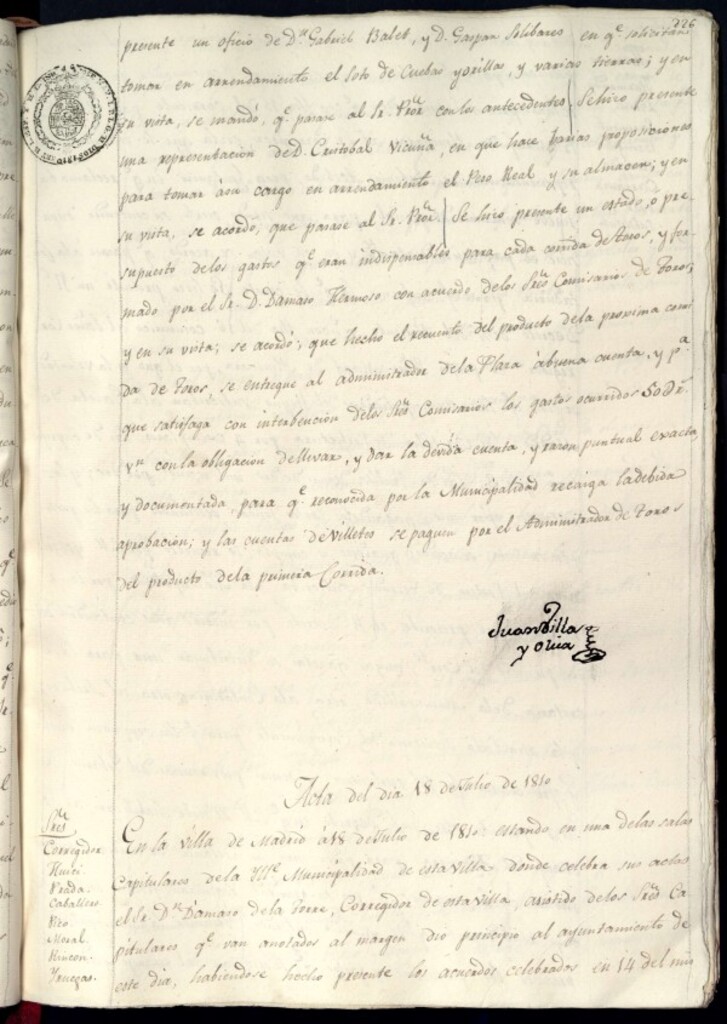 226
presente un oficio de Dn. Gabriel Balet, y D. Gaspar Solibares en qe. solicitan
tomar en arrendamiento el Soto de Cuebas y orillas, y varias tierras; y en
su vista, se mandó, qe. pasase al Sr. Pror. con los antecedentes. Se hizo presente
una representacion de D. Cristobal Vicuña, en que hace barias proposiciones
para tomar á su cargo en arrendamiento el Peso Real y su almacen; y en
su vista, se acordó, que pasase al Sr. Pror. Se hizo presente un estado, ó pre-
supuesto de los gastos qe. eran indispensables para cada corrida de toros, y for-
mado por el Sr. D. Damaso Hermoso con acuerdo de los Sres. Comisarios de Toros;
y en su vista; se acordó, que hecho el recuento del producto de la proxima corri
da de Toros, se entregue al administrador de la Plaza á buena cuenta, y pa.
que satisfaga con interbencion de los Sres. Comisarios los gastos ocurridos 50 Dr.
vn. con la obligacion de llevar, y dar la devida cuenta, y razon puntual exacta,
y documentada, para qe. reconocida por la Municipalidad recaiga la debida
aprobacion; y las cuentas de villetes se paguen por el Administrador de Toros
del producto de la primera Corrida.
Juan Villa
y Olier
Acta del dia 18 de Julio de 1810
Sres.
Corregidor
Huici.
Prada.
Caballero
Pico
Moral.
Rincon.
Yruegas.
En la villa de Madrid á 18 de Julio de 1810: estando en una de las salas
Capitulares de la Ille. Municipalidad de esta Villa donde celebra sus actas
el Sr. Dn. Damaso de la Torre, Corregidor de esta villa, asistido de los Sres. Ca
pitulares qe. van anotados al margen dio principio al ayuntamiento de
este dia, habiendose hecho presente los acuerdos celebrados en 14 del mis